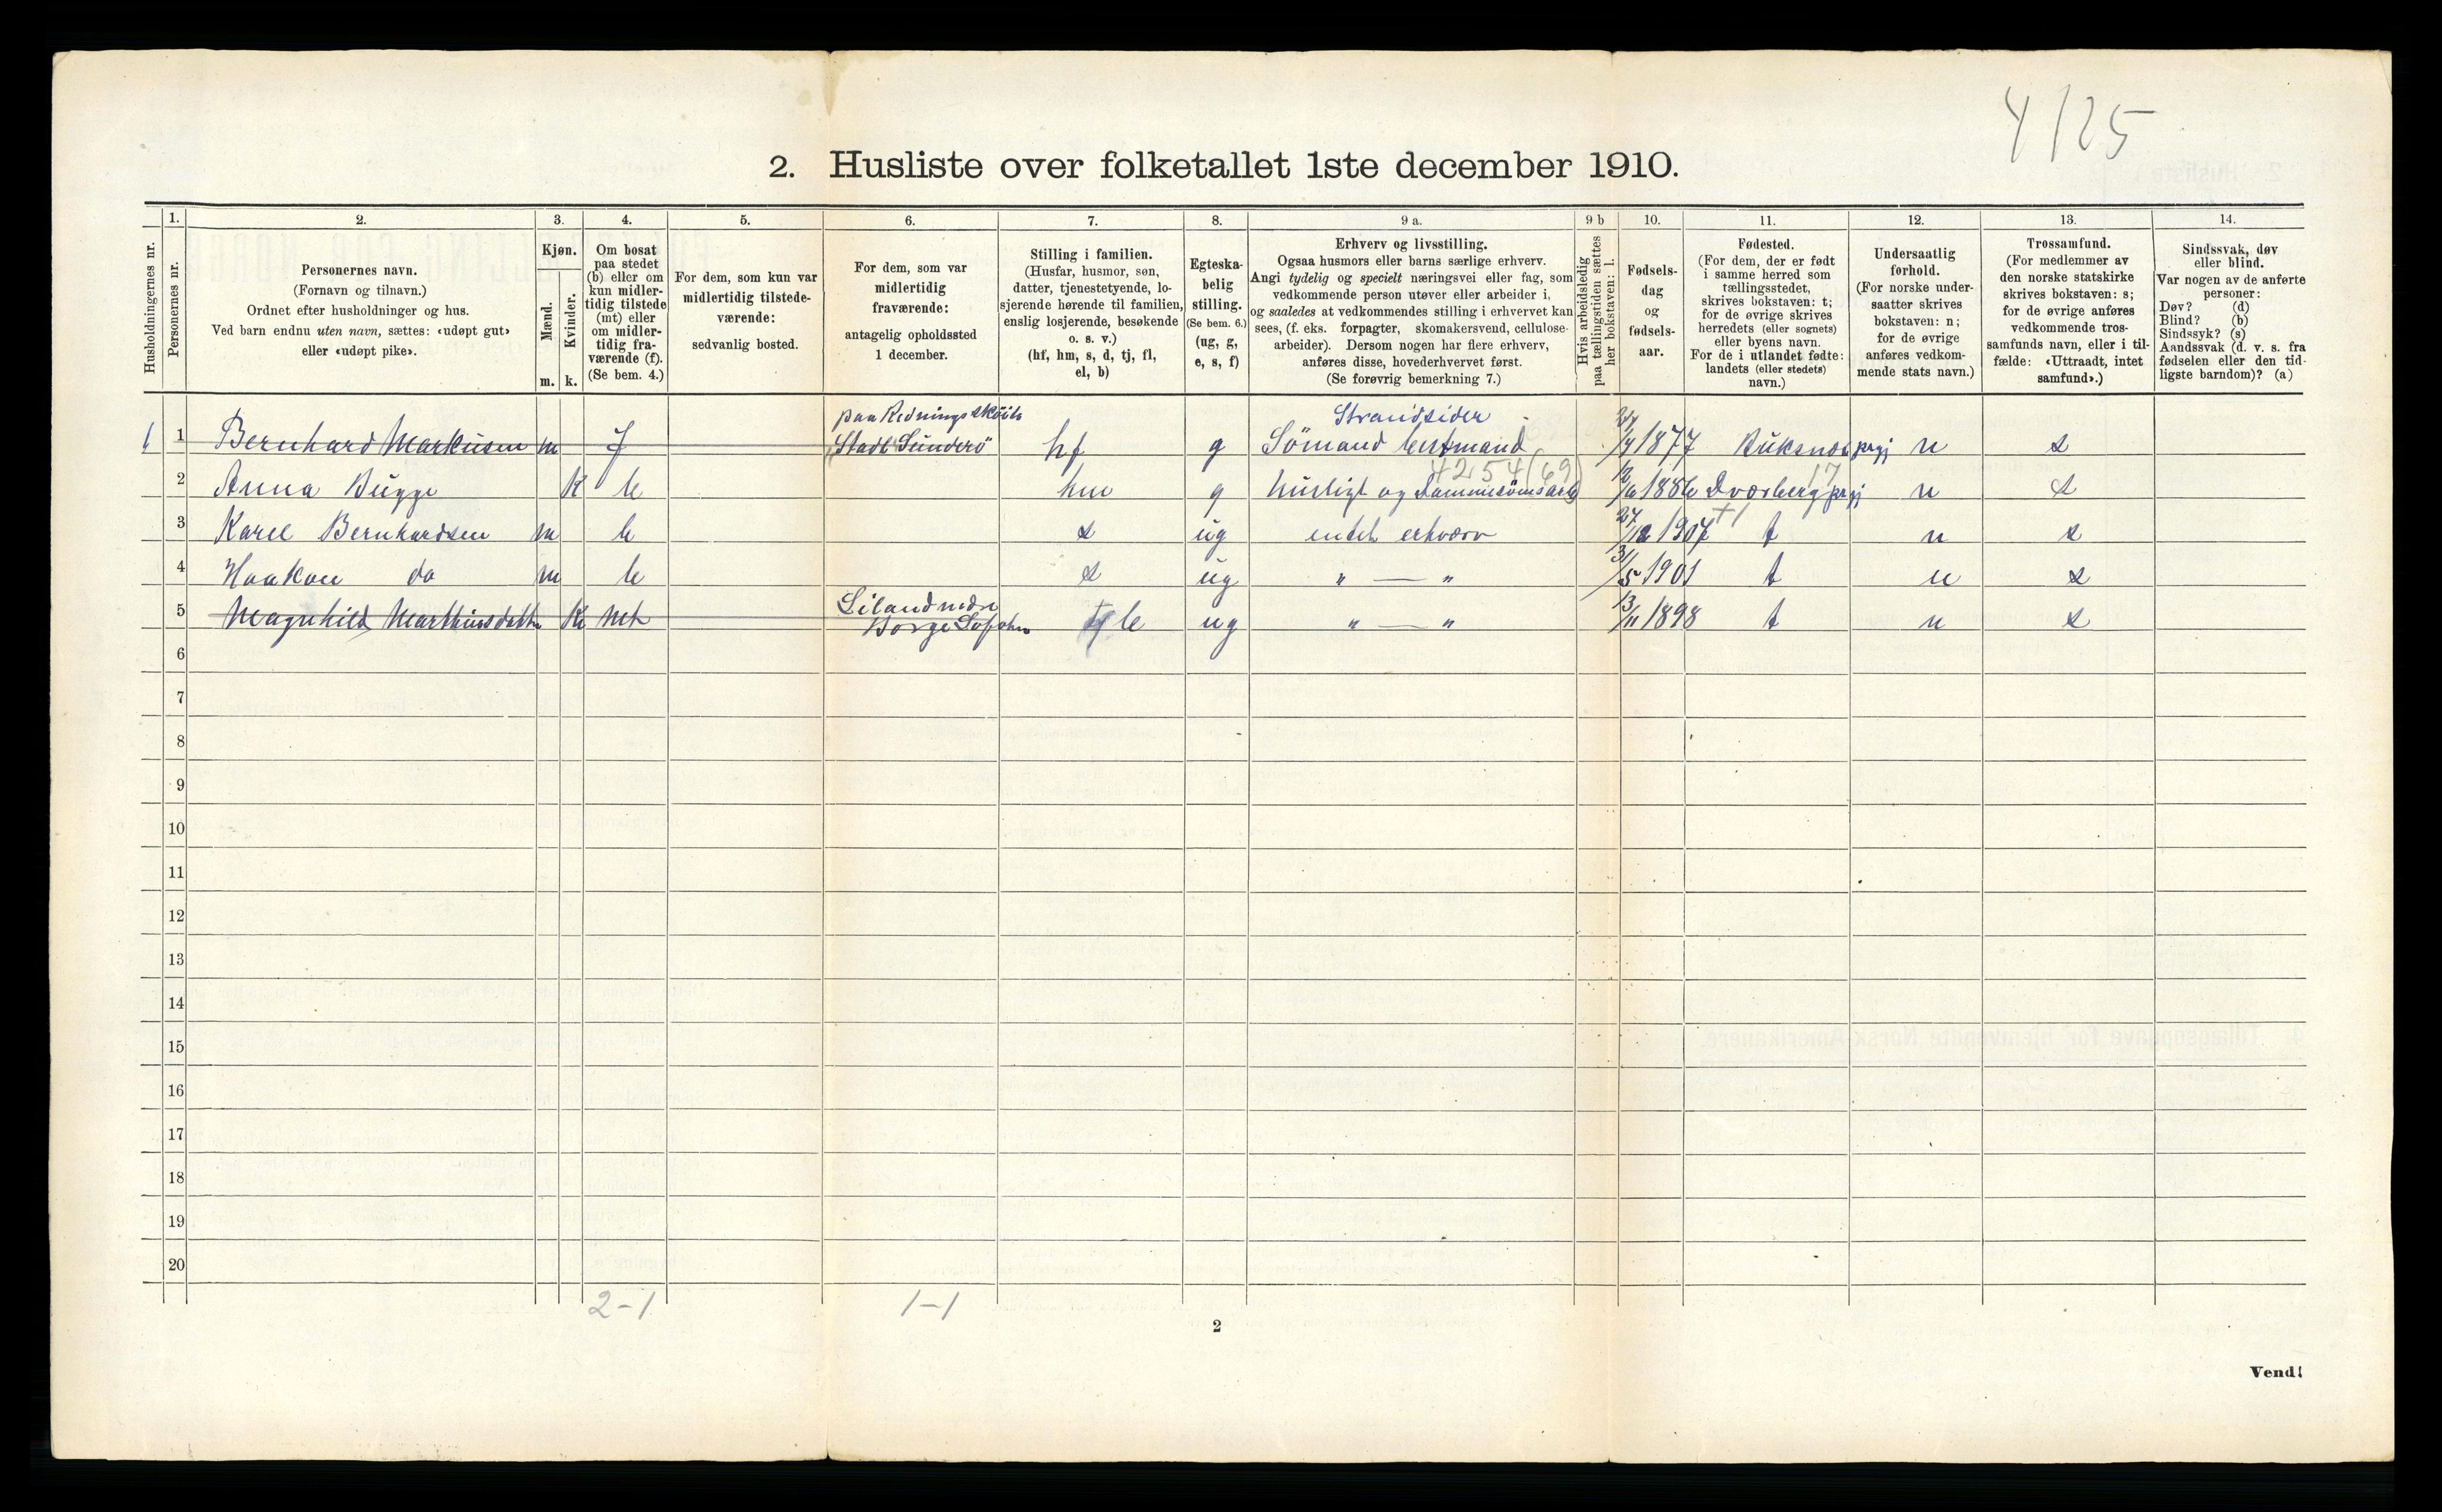 4/25
2. Husliste over folketallet 1ste december 1910.
Husholdningernes nr.
1.
Personernes nr.
2.
Personernes navn.
(Fornavn og tilnavn.)
Ordnet efter husholdninger og hus.
Ved barn endnu uten navn, sættes: «udøpt gut»
eller «udøpt pike».
3.
Kjøn.
Mænd.
Kvinder.
m. k.
4.
Om bosat
paa stedet
(b) eller om
kun midler-
tidig tilstede
(mt) eller
om midler-
tidig fra-
værende (f).
(Se bem. 4.)
5.
For dem, som kun var
midlertidig tilstede-
værende:
sedvanlig bosted.
6.
For dem, som var
midlertidig
fraværende:
antagelig opholdssted
1 december.
7.
Stilling i familien.
(Husfar, husmor, søn,
datter, tjenestetyende, lo-
sjerende hørende til familien,
enslig losjerende, besøkende
o. s. v.)
(hf, hm, s, d, tj, fl,
el, b)
8.
Egteska-
belig
stilling.
(Se bem. 6.)
(ug, g,
e, s, f)
9 a.
Erhverv og livsstilling.
Ogsaa husmors eller barns særlige erhverv.
Angi tydelig og specielt næringsvei eller fag, som
vedkommende person utøver eller arbeider i,
og saaledes at vedkommendes stilling i erhvervet kan
sees, (f. eks. forpagter, skomakersvend, cellulose-
arbeider). Dersom nogen har flere erhverv,
anføres disse, hovederhvervet først.
(Se forøvrig bemerkning 7.)
9 b
Hvis arbeidsledig
paa tællingstiden sættes
her bokstaven: l.
10.
Fødsels-
dag
og
fødsels-
aar.
11.
Fødested.
(For dem, der er født
i samme herred som
tællingsstedet,
skrives bokstaven: t;
for de øvrige skrives
herredets (eller sognets)
eller byens navn.
For de i utlandet fødte:
landets (eller stedets)
navn.)
12.
Undersaatlig
forhold.
(For norske under-
saatter skrives
bokstaven: n;
for de øvrige
anføres vedkom-
mende stats navn.)
13.
Trossamfund.
(For medlemmer av
den norske statskirke
skrives bokstaven: s;
for de øvrige anføres
vedkommende tros-
samfunds navn, eller i til-
fælde: «Uttraadt, intet
samfund».)
14.
Sindssvak, døv
eller blind.
Var nogen av de anførte
personer:
Døv? (d)
Blind? (b)
Sindssyk? (s)
Aandssvak (d. v. s. fra
fødselen eller den tid-
ligste barndom)? (a)
paa Redningsskøite Strandsider
1 1 Bernhard Markusen m f hf g Sömand 1877 prgj n s
2 Anna Bugge K b hm g husligt og 4254(69) 1886 17 prgj n s
3 Karel Bernhardsen m b s ug intet erhværv 27/12 1907 t n s
4 Haakon do m b s ug " — " 31/5 1901 t n s
5 Magnhild Marthinsdatter K mt b ug " — " 13/11 1898 t n s
6
7
8
9
10
11
12
13
14
15
16
17
18
19
20
2-1 1-1
2
Vend!